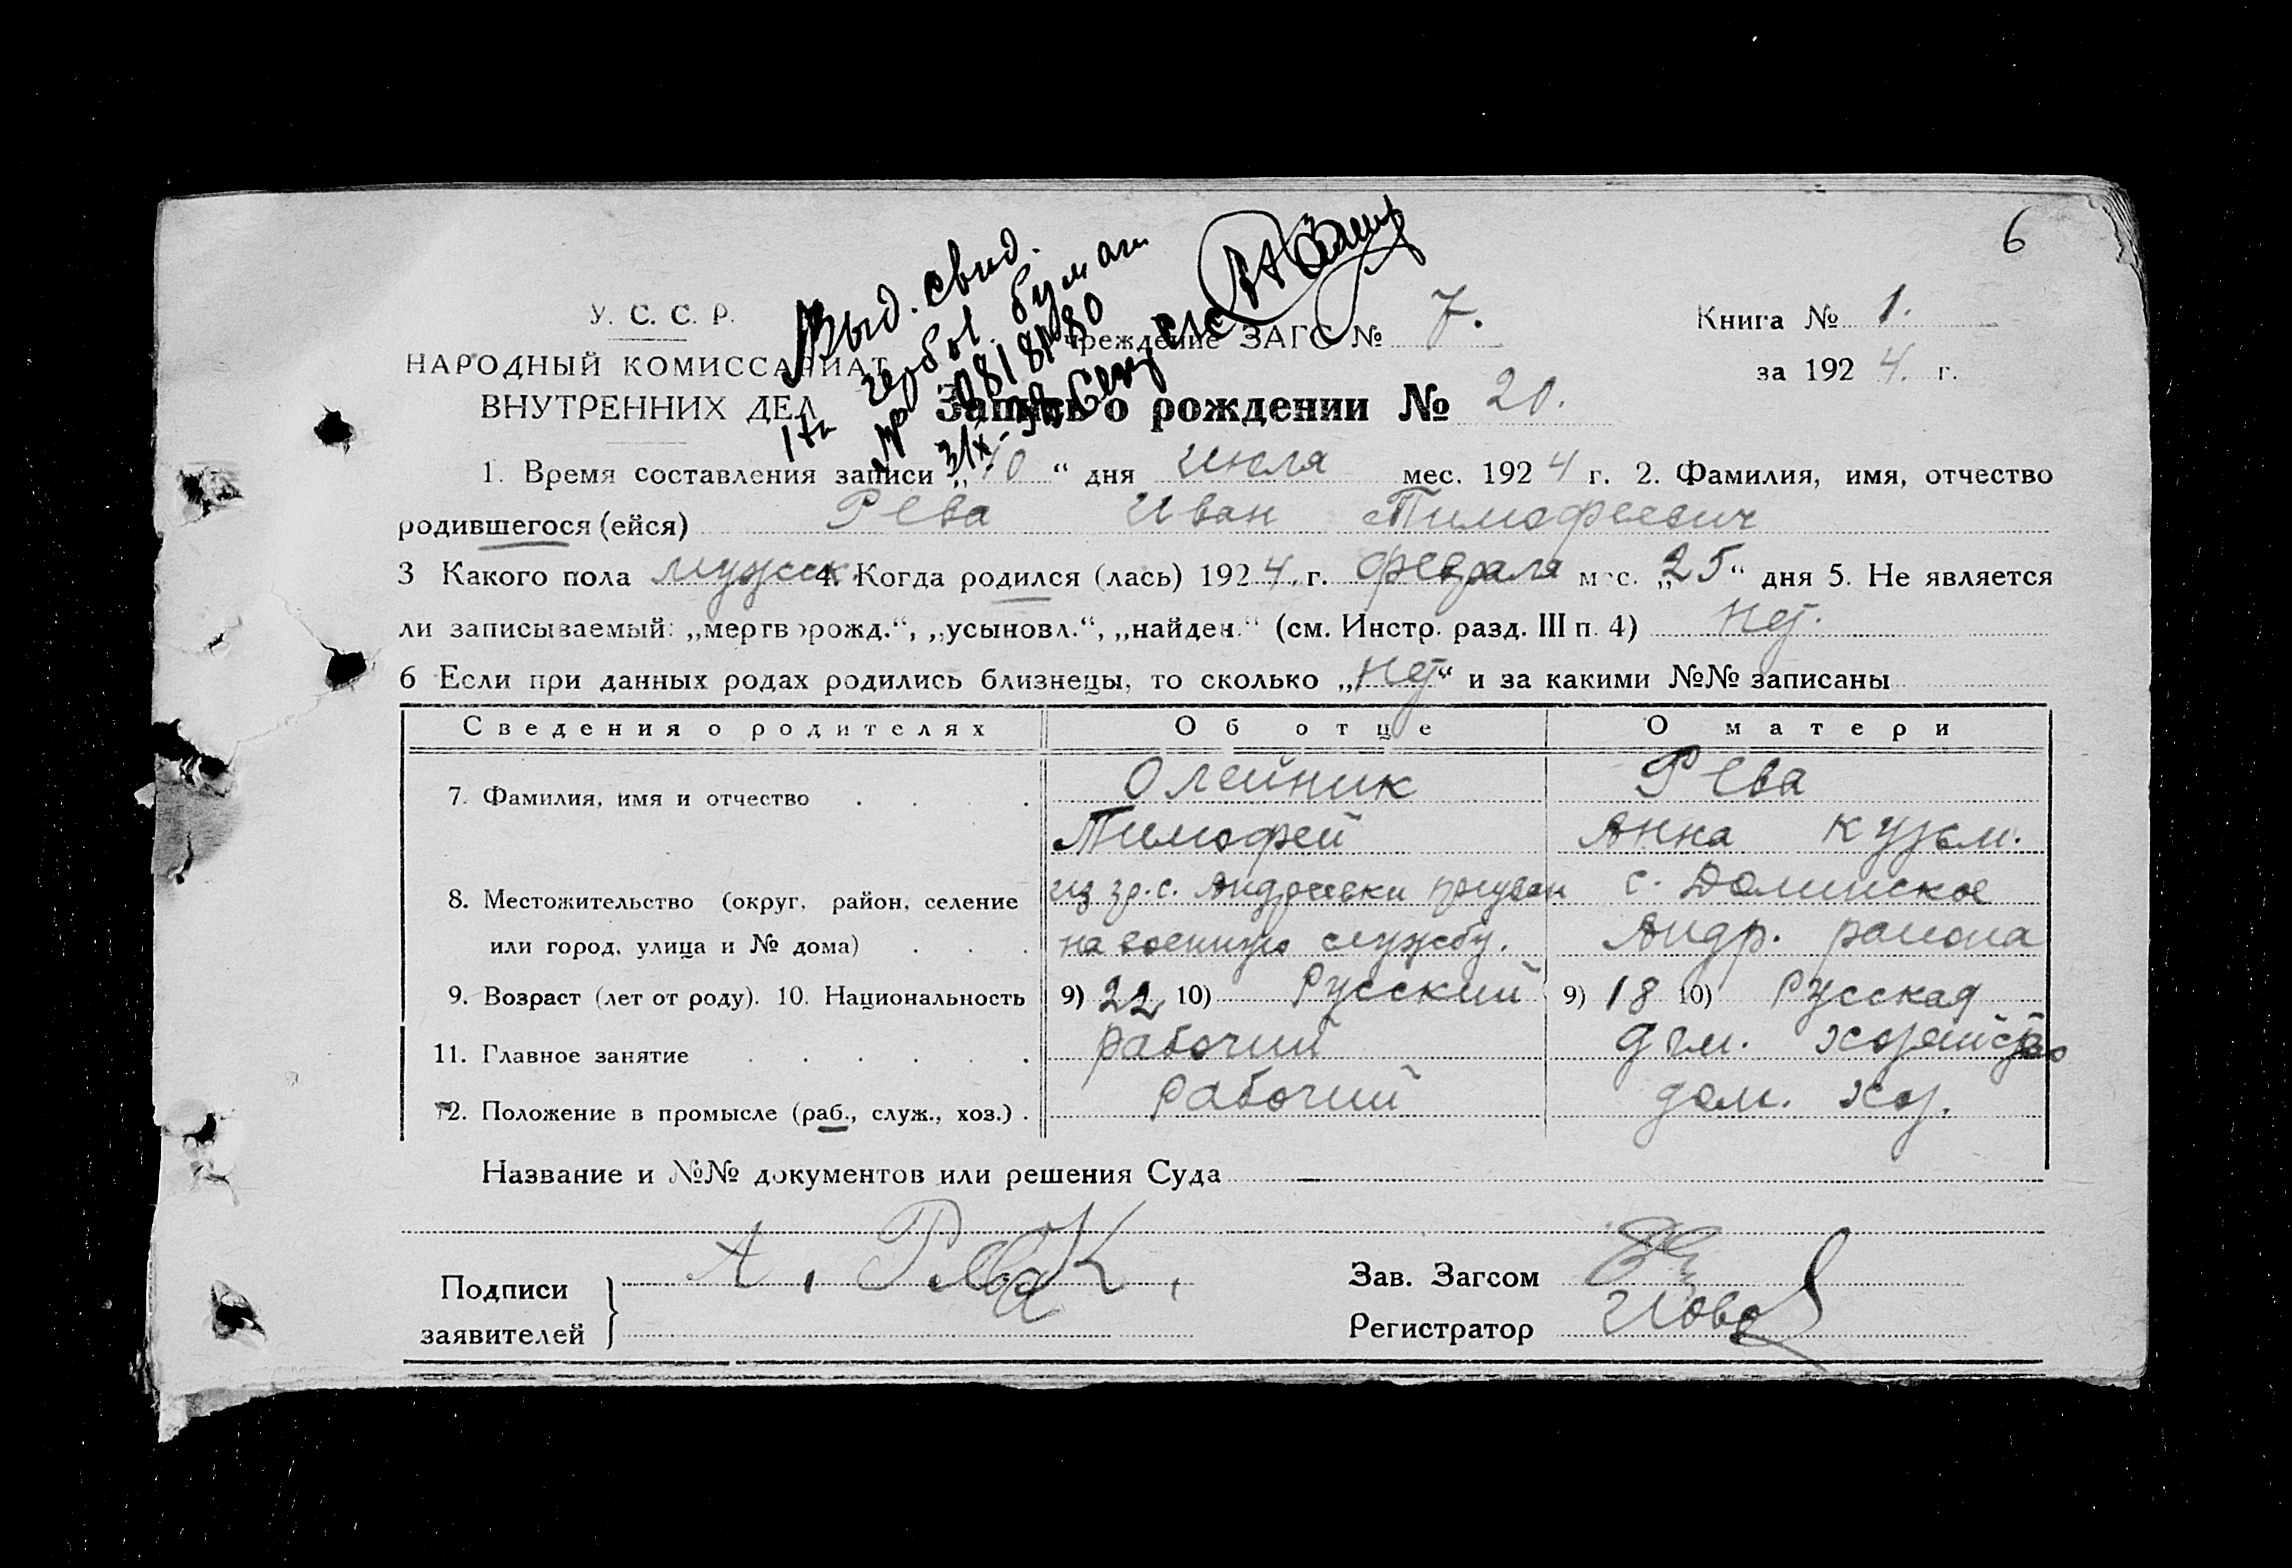 6
Выд. свид.
У. С. С. Р.
Учреждение ЗАГС № 7.
Книга № 1.
НАРОДНЫЙ КОМИССАРИАТ
за 1924. г.
ВНУТРЕННИХ ДЕЛ
Запись о рождении № 20.
1. Время составления записи „10“ дня Июля мес. 1924 г. 2. Фамилия, имя, отчество
родившегося (ейся) Рева Иван Тимофеевич
3 Какого пола мужск. 4. Когда родился (лась) 1924. г. февраля мес. „25“ дня 5. Не является
ли записываемый: „мертворожд.“, „усыновл.“, „найден.“ (см. Инстр. разд. III п. 4) нет.
6 Если при данных родах родились близнецы, то сколько „нет“ и за какими №№ записаны
Сведения о родителях Об отце О матери
7. Фамилия, имя и отчество Олейник Рева
Тимофей Анна Кузьм.
8. Местожительство (округ, район, селение из гр. с. Андреевки призван с. Долинское
или город, улица и № дома) на военную службу. Андр. района
9. Возраст (лет от роду). 10. Национальность 9) 22 10) Русский 9) 18 10) Русская
11. Главное занятие рабочий дом. хозяйство
12. Положение в промысле (раб., служ., хоз.) рабочий дом. хоз.
Название и №№ документов или решения Суда —
Подписи заявителей А. Рева К.
Зав. Загсом
Регистратор